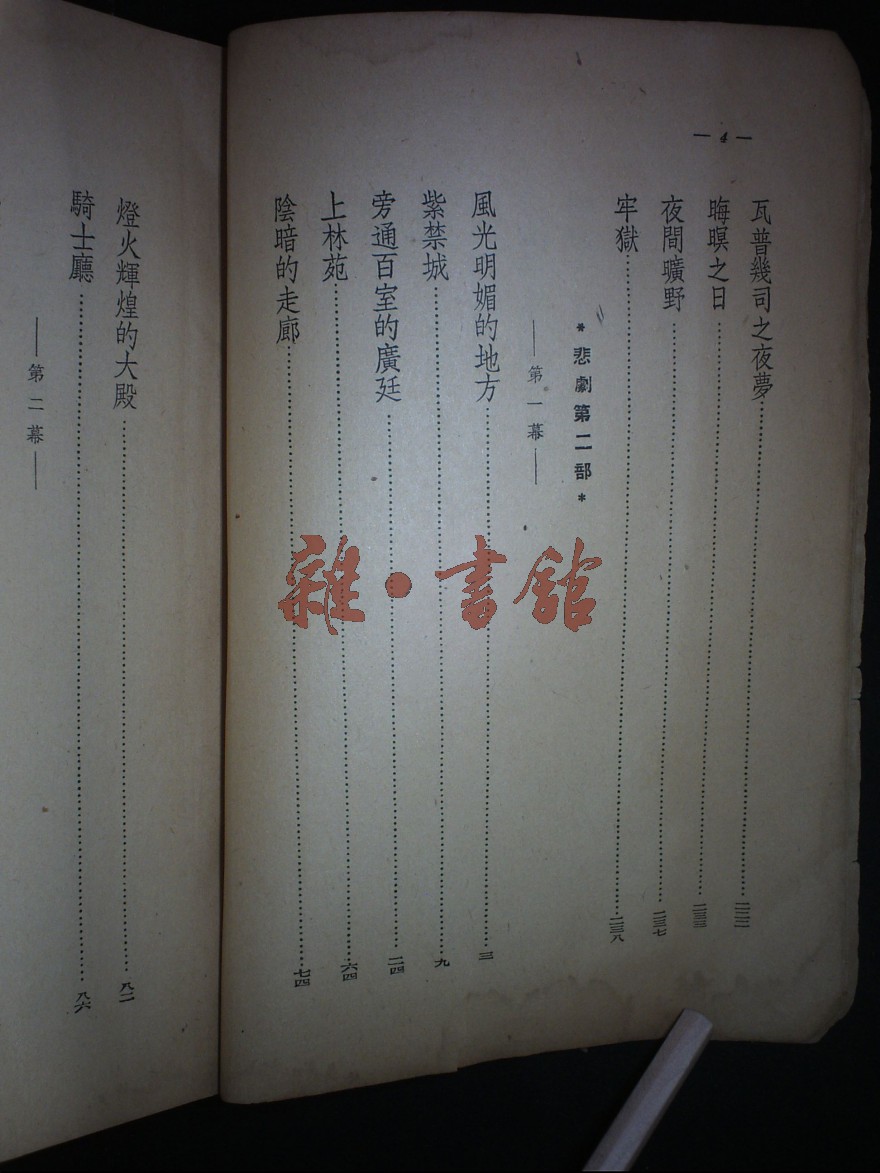 — 4 —
瓦普幾司之夜夢……二二二
晦暝之日……二三三
夜間曠野……二三七
牢獄……二三八
*悲劇第二部*
——第一幕——
風光明媚的地方……三
紫禁城……九
旁通百室的廣廷……二四
上林苑……六四
陰暗的走廊……七四
燈火輝煌的大殿……八二
騎士廳……八六
——第二幕——
雜·書館